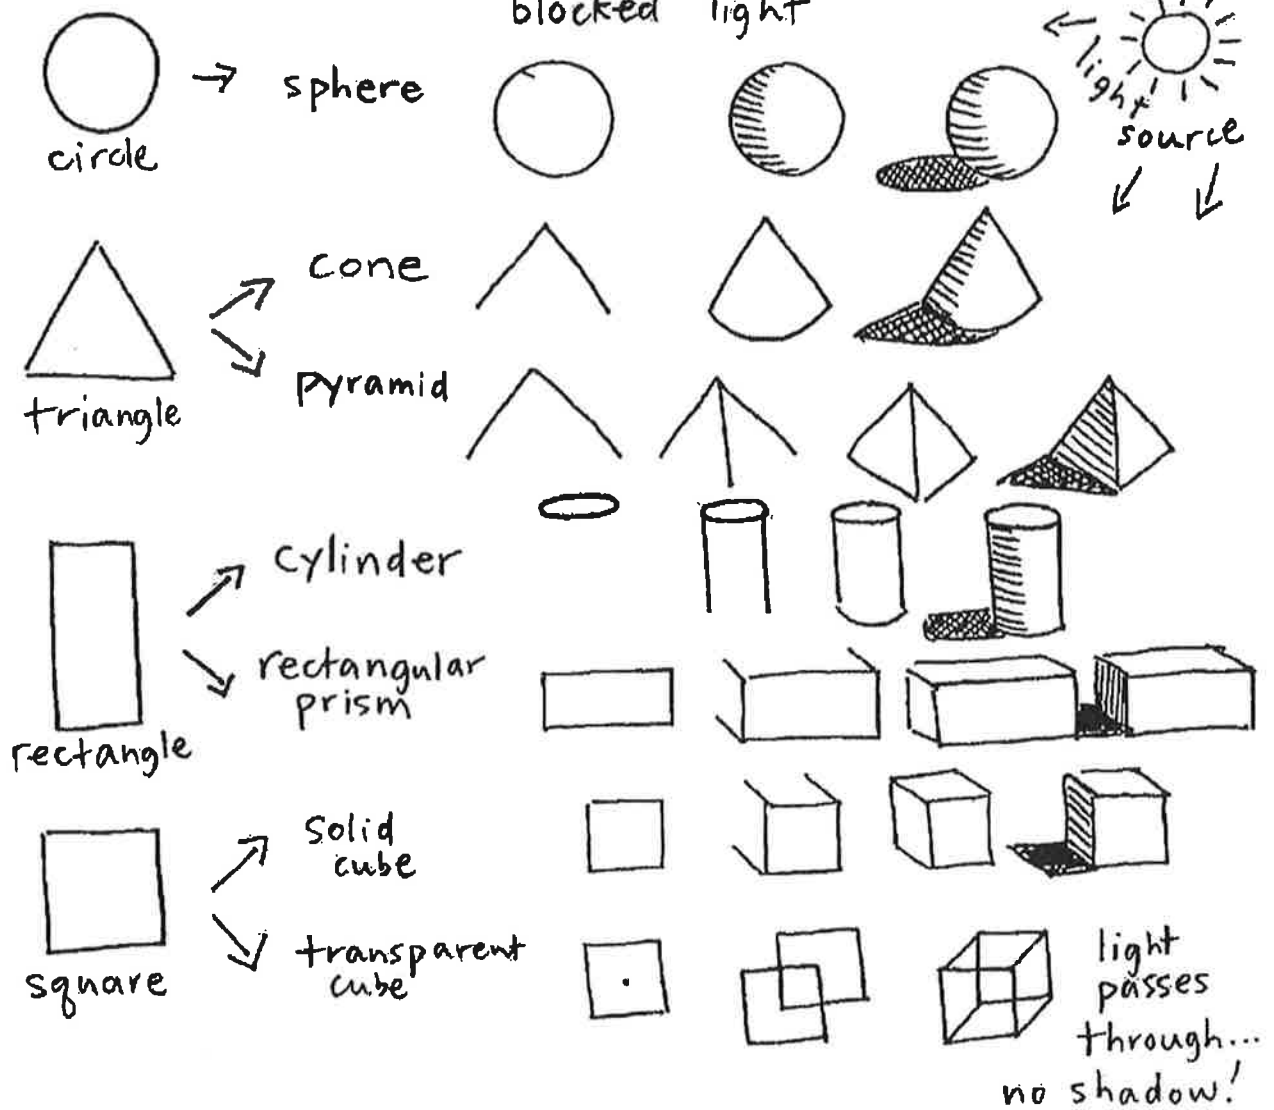 blocked light
light
source
circle
sphere
triangle
cone
pyramid
rectangle
cylinder
rectangular
prism
square
solid
cube
transparent
cube
light
passes
through...
no shadow!